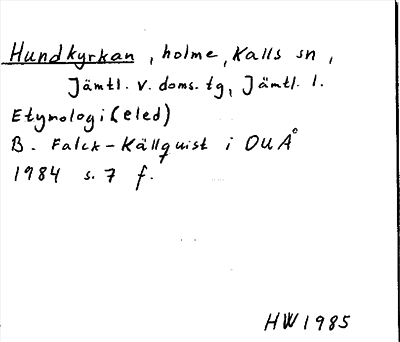 Hundkyrkan, holme, Kalls sn,
Jämtl. v. doms. tg, Jämtl. l.
Etymologi(eled)
B. Falck-Källquist i OUÅ
1984 s. 7 f.
HW 1985